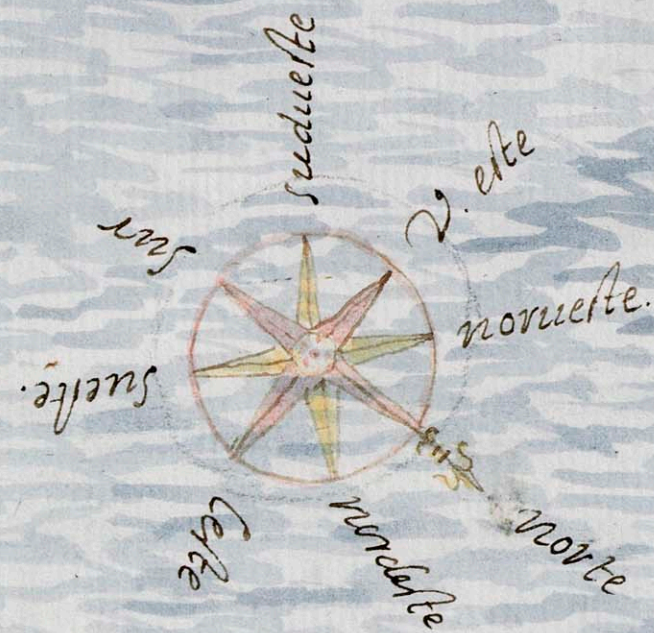 sudueste
V. este
norueste.
norte
nordeste
leste
sueste.
sur